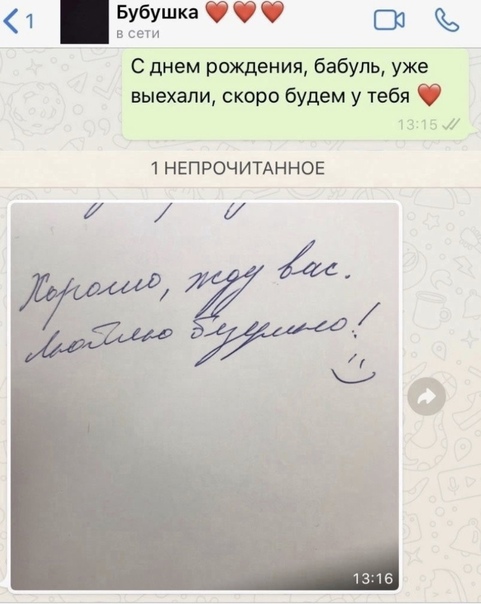 1
Бубушка ❤️ ❤️ ❤️
в сети
С днем рождения, бабуль, уже
выехали, скоро будем у тебя ❤️
13:15
1 НЕПРОЧИТАННОЕ
Хорошо, жду вас.
Люблю безумно!
13:16